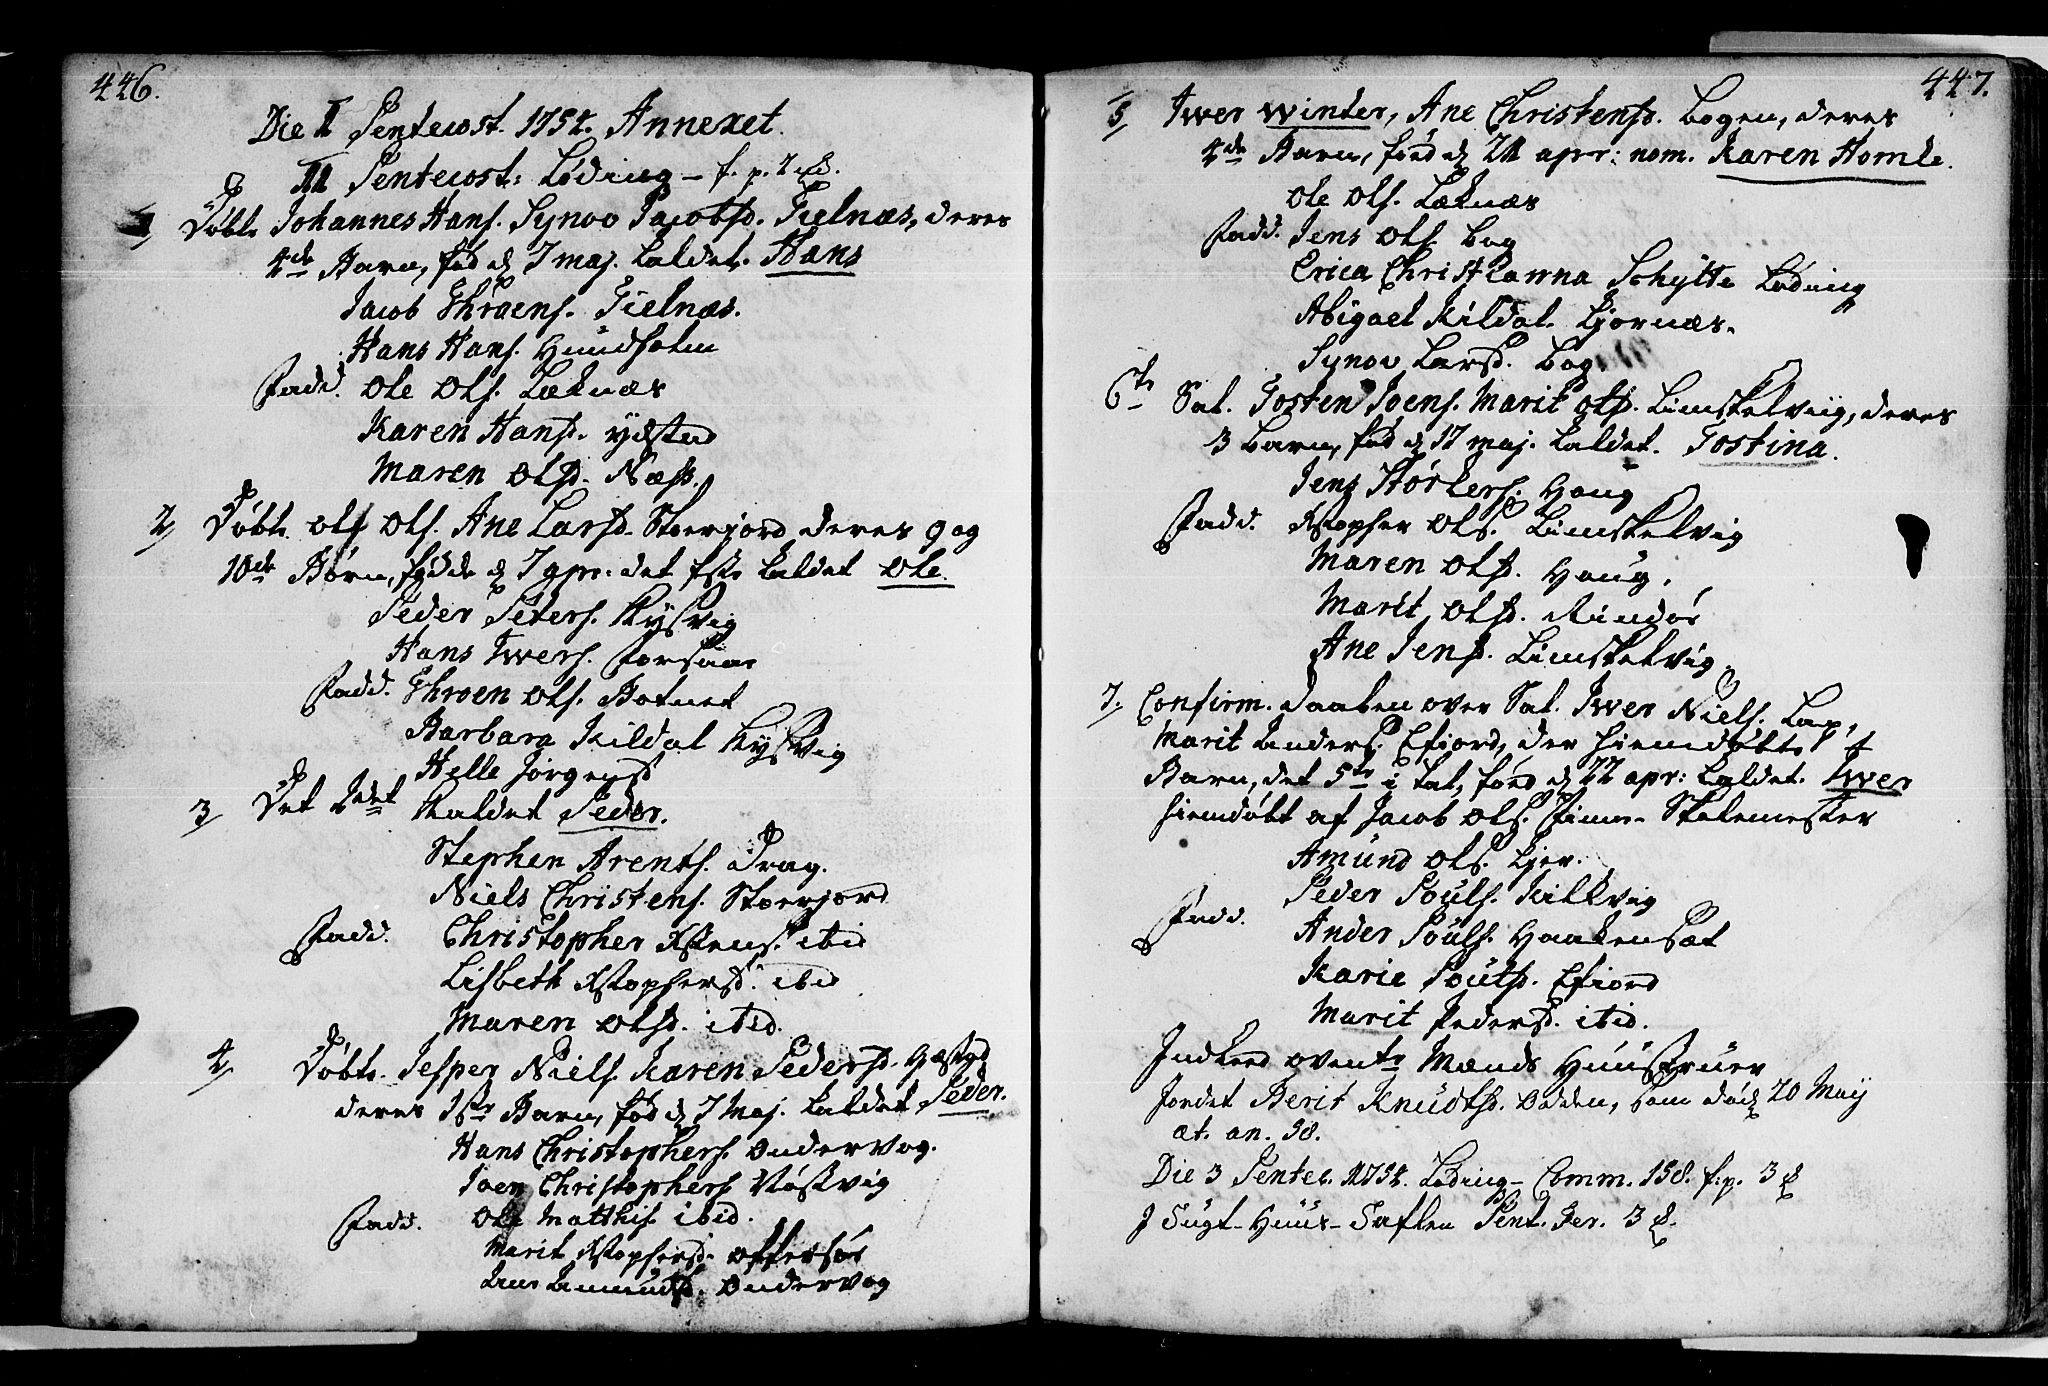 446.
Die I Pentecost. 1754. Annexet.
II Pentecost: Løding – f. p.
1/ Døbt. Johannes Hans. Synov Jacobsd. Fielnæs, deres
4de Barn, fød d. 7 maj. kaldet. Hans
Jacob Thraens. Fielnæs.
Hans Hans. Hundholm
Fadd. Ole Ols. Læknæs
Karen Hansd. ydstad
Maren Olsd. Næss.
2/ Døbt. Ols. Ane Larsd. Stoerjord deres 9 og
10de Børn, fødde d. 7 det kaldet Ole.
Peder Peters. Kysvig
Hans Iwers. Forsaae
Fadd. Thraen Ols. Botnet
Barbara Kildal Kysvig
Helle Jørgensd
3/ Det 2det Kaldet Peder.
Stephen Arents. Drag.
Niels Christens. Stoerjord
Fadd. Christopher Xstens. ibid
Lisbeth Xstophersd. ibid
Maren Olsd. ibid.
4/ Døbt. Jesper Niels. Karen Pedersd.
deres 1ste Barn, fød d. 7 Maj. kaldet Peder.
Hans Christophers. Ondervog.
Joen Christophers
Fadd. Ole Matthis. ibid.
Marit Xstophersd. Offersøe
Ondervog
447.
5/ Iwer Winter, Ane Christensd. Bogen, deres
4de Barn, føed d. 21 apr: nom. Karen Homle.
Ole Ols. Læknæs
Fadd. Jens Ols. Bog
Erica Christianna Schytte Løding
Abigael Kildal. Kjørnæs.
Synov Larsd. Bog.
6te Sal. Tosten Joens. Marit Olsd. Limstelviig, deres
3 Barn, fød d. 17 maj. kaldet. Tostina.
Jens Størkers. Haug
Fadd. Xstopher Ols. Limstelvig
Maren Olsd. Haug.
Marit Olsd. Rindøe
Ane Jensd. Limstelvig.
7. Confirm. Daaben over Sal. Iwer Niels. Lap,
Marit Anders. Efiord, der hiemdøbte
Barn, det 5te i tal, føed d. 22 apr: kaldet. Iwer
hiemdøbt af Jacob Ols. Finne-Skolemester
Amund Ols. Kjer.
Peder Pouls. Kilkvig
Fadd. Ander Pouls. Haakensæt
Karie Poulsd. Efiord
Marit Pedersd. ibid.
Indleed ovente Mænds Huustruer
Jordet Berit Knudtsd. Odden, som døde 20 Maij
æt. an. 58.
Die 3 Pentec. 1754. Løding – Comm. 158. f. p. 3
I Tugt-Huus-Taflen Pent. Fer. 3